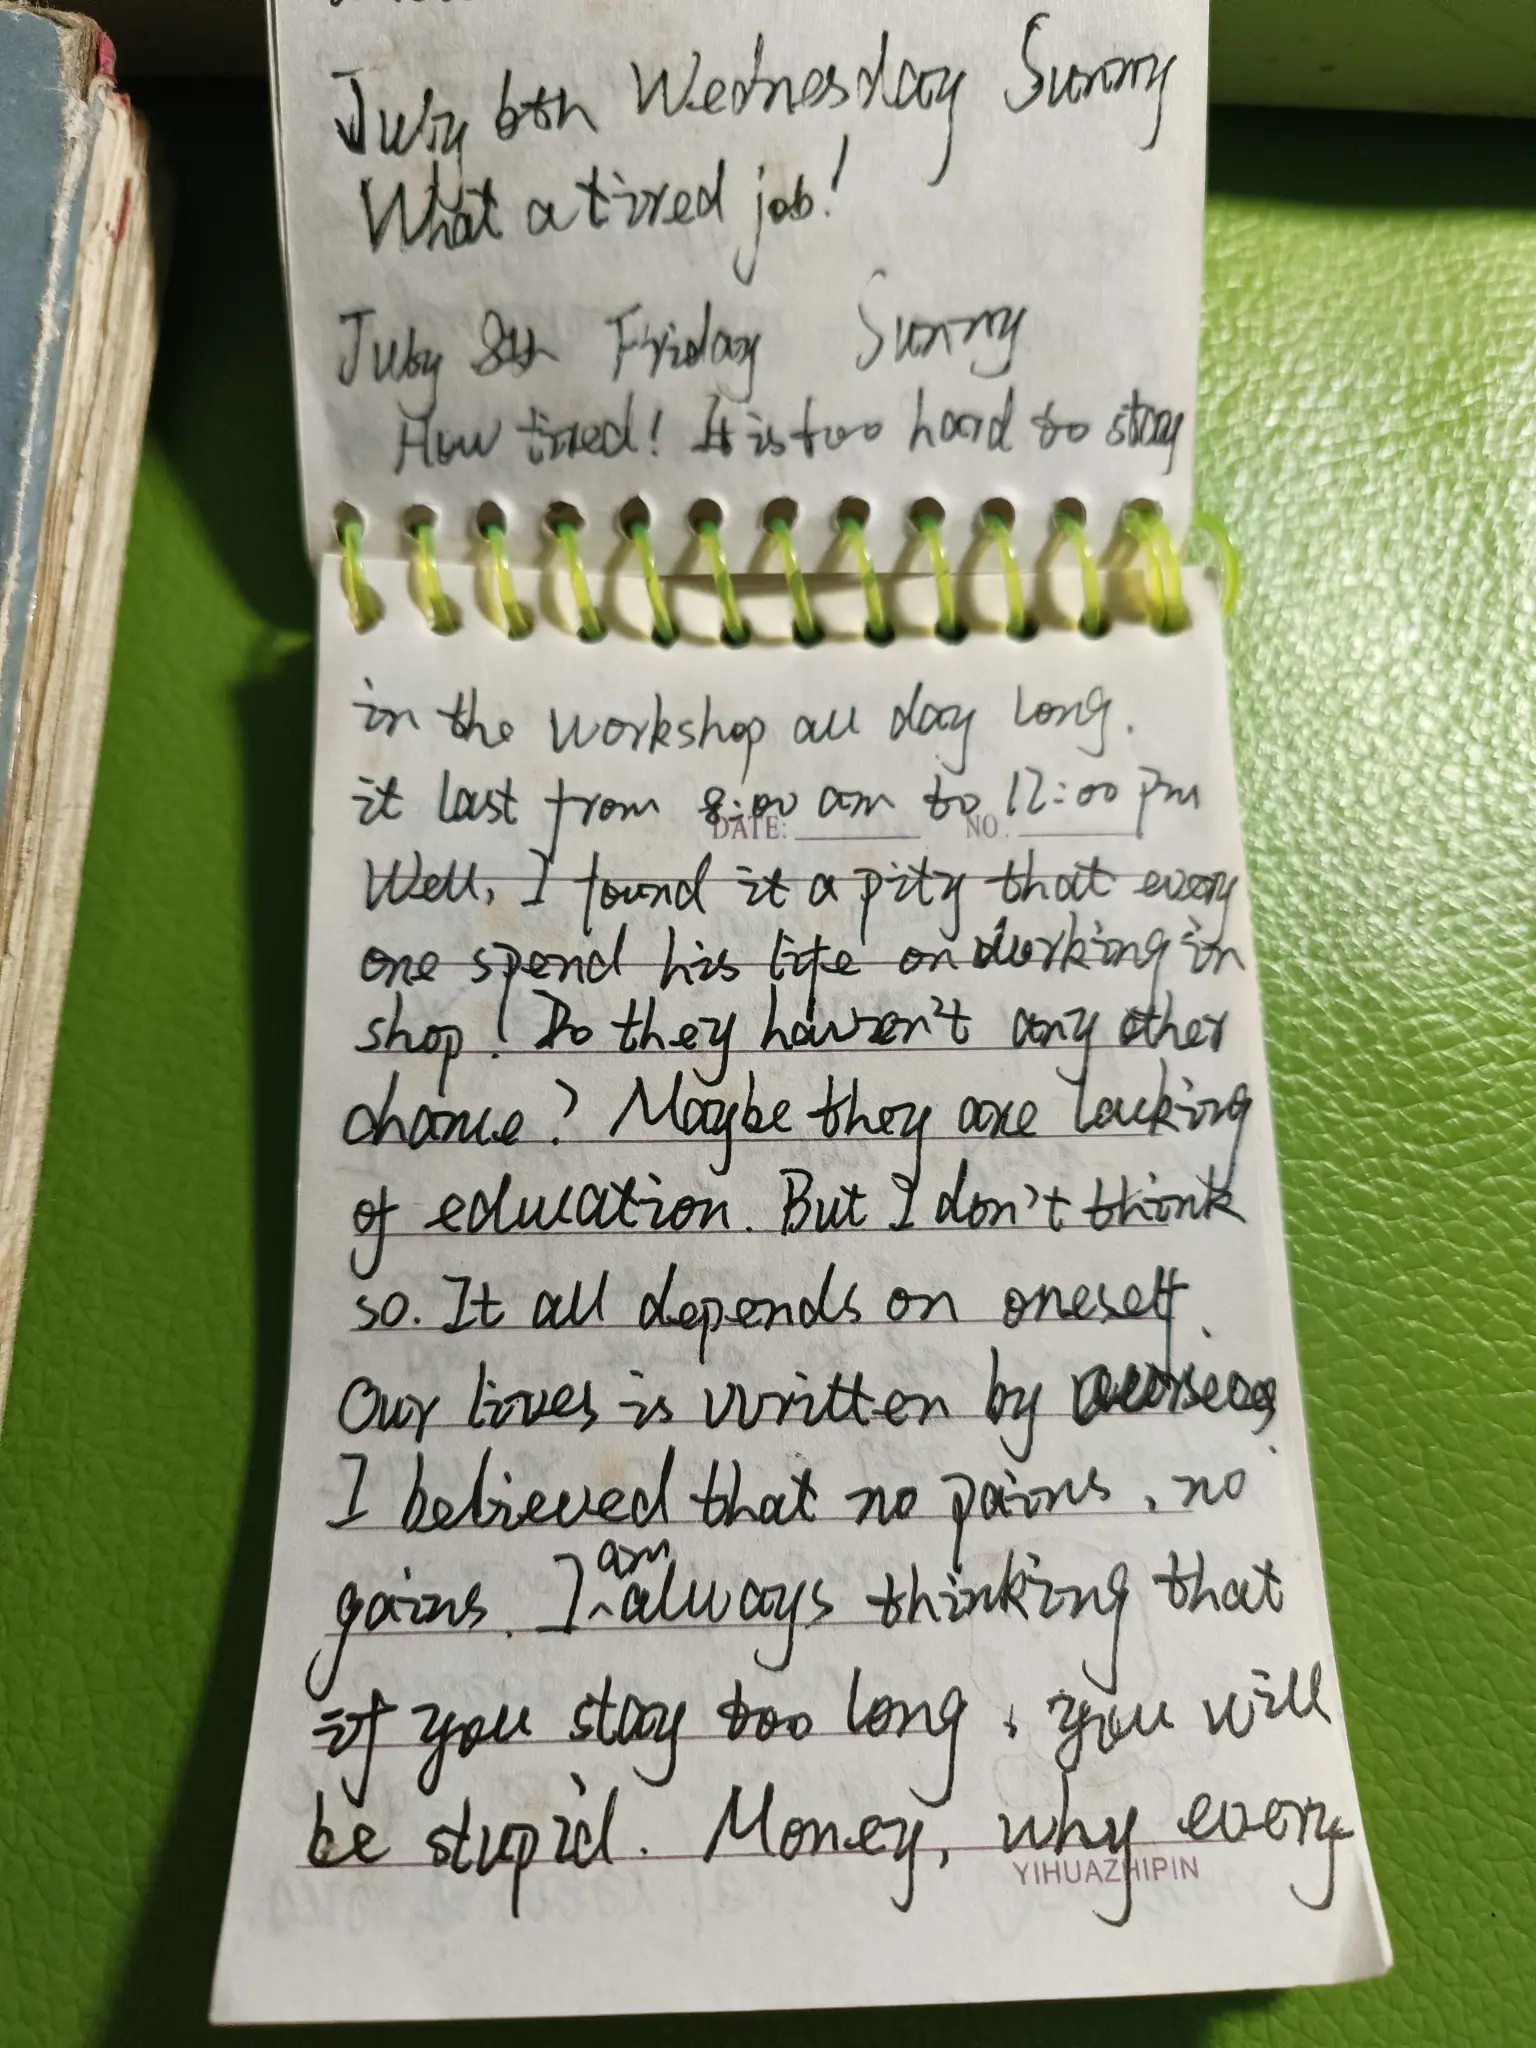 July 6th Wednesday Sunny
What a tired job!
July 8th Friday Sunny
How tired! It is too hard to stay
in the workshop all day long.
it last from 8:00 am to 12:00 pm
DATE: NO.
Well, I found it a pity that every
one spend his life on working in
shop! Do they haven't any other
chance? Maybe they are lacking
of education. But I don't think
so. It all depends on oneself.
Our lives is written by
I believed that no pains, no
gains. I am always thinking that
if you stay too long, you will
be stupid. Money, why every
YIHUAZHIPIN